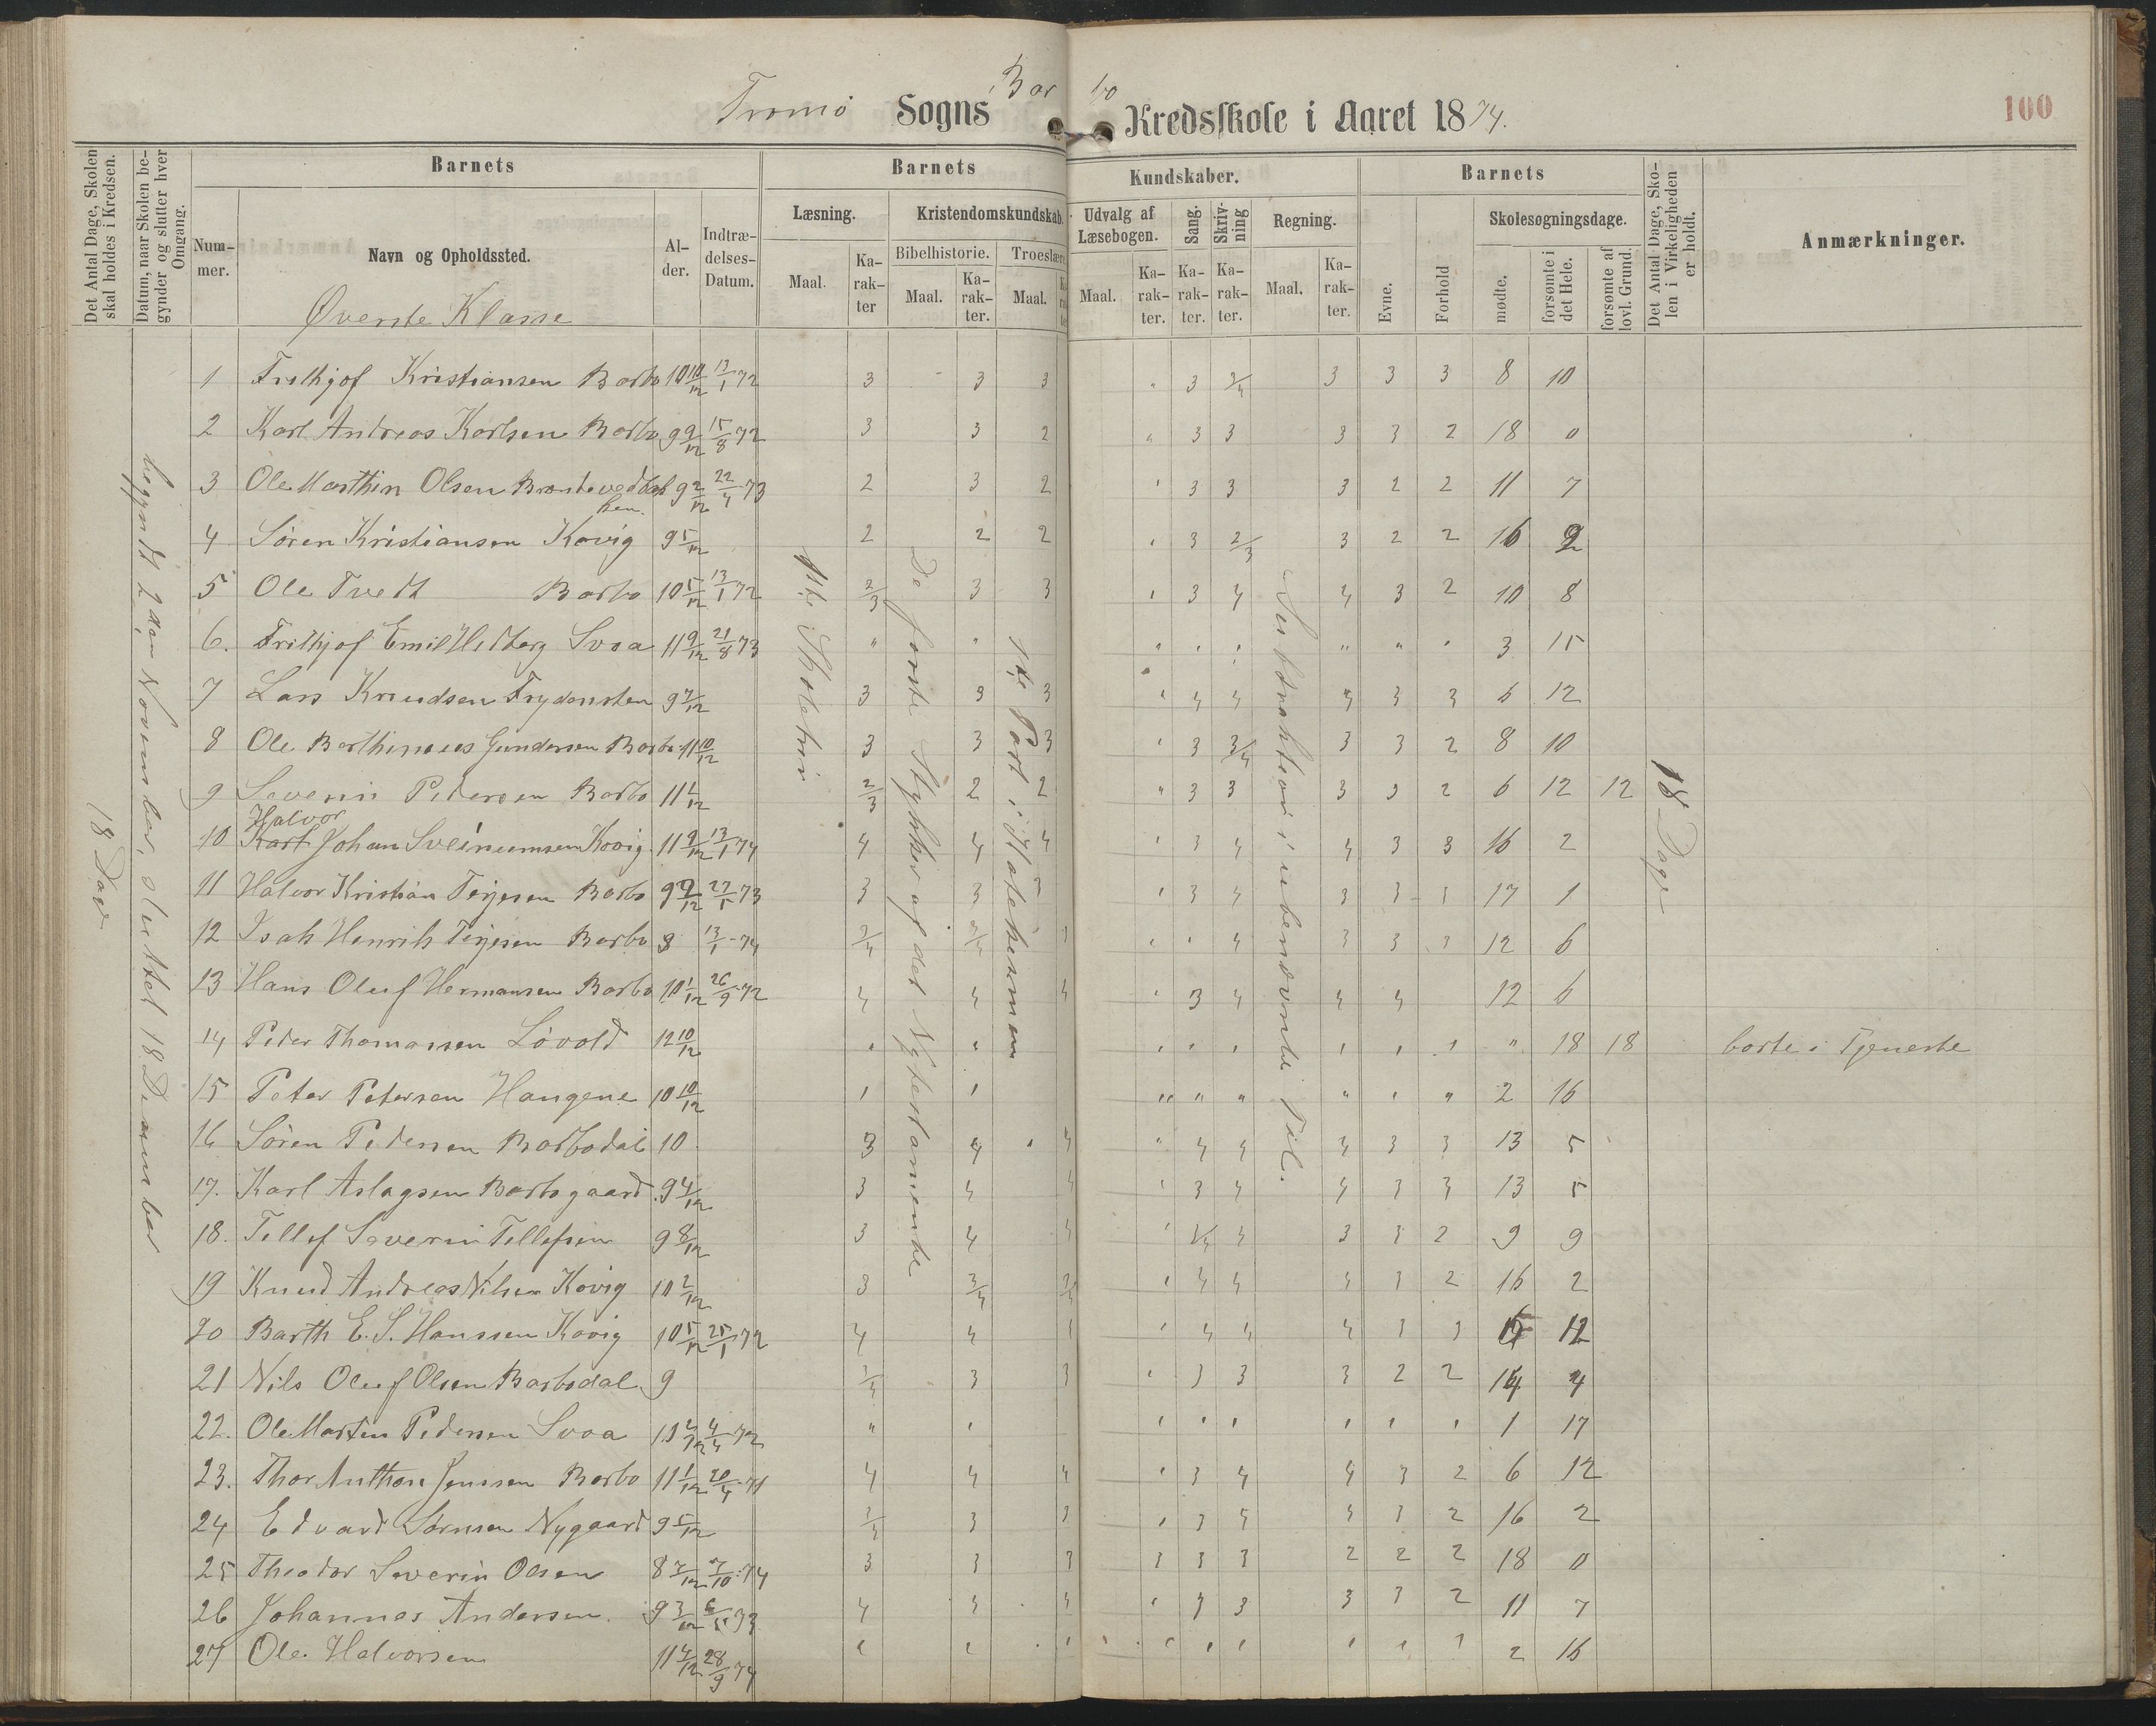 Tromø Sogns Barbo Kredsskole i Aaret 1874.
100
Det Antal Dage, Skolen skal holdes i Kredsen.
Datum, naar Skolen begynder og slutter hver Omgang.
Barnets
Nummer.
Navn og Opholdssted.
Alder.
Indtrædelses-Datum.
Barnets Kundskaber.
Læsning.
Maal.
Karakter
Kristendomskundskab.
Bibelhistorie.
Maal.
Karakter.
Troeslære
Maal.
Udvalg af Læsebogen.
Maal.
Karakter.
Sang.
Karakter.
Skrivning
Karakter.
Regning.
Maal.
Karakter.
Barnets
Evne.
Forhold
Skolesøgningsdage.
mødte.
forsømte i det Hele.
forsømte af lovl. Grund.
Det Antal Dage, Skolen i Virkeligheden er holdt.
Anmærkninger.
Øverste Klasse
18 Dage
begyndt 2den November, sluttet 18 December
1ste Skoletrin
De første Stykker af det Ny testamente
1ste Part i Katekismen
18 Dage
1 Frithjof Kristiansen Barbo 10 10/12 13/1 72 3 3 3 " 3 3/4 3 3 3 8 10
2 Karl Andreas Karlsen Barbo 9 9/12 15/8 72 3 3 2 " 3 3 3 3 2 18 0
3 Ole Marthin Olsen 9 2/12 22/4 73 2 3 2 " 3 3 3 2 2 11 7
4 Søren Kristiansen Kovig 9 5/12 2 2 2 " 3 2/3 3 2 2 16 2
5 Ole Tvedt Barbo 10 5/12 13/1 72 2/3 3 3 " 3 4 4 3 2 10 8
6. Frithjof Emil Hedberg Svoa 11 9/12 21/8 73 " " " " " " " " 3 15
7 Lars Knudsen Frydensten 9 7/12 3 3 3 " 4 4 4 3 3 6 12
8 Ole Barthineus Gundersen Barbo 11 10/12 3 3 3 " 3 3/4 3 3 2 8 10
9 Severin Pedersen Barbo 11 1/12 2/3 2 2 " 3 3 3 3 2 6 12 12
Halvor
10 Karl Johan Sveinumsen Kovig 11 9/12 13/1 74 4 4 4 " 3 4 4 3 3 16 2
11 Halvor Kristian Terjesen Barbo 9 9/12 27/5 73 3 3 3 " 3 4 3 3 3 17 1
12 Isak Henrik Terjesen Barbo 8 13/1 74 3/4 3/4 3 " " 4 3 3 3 12 6
13 Hans Oluf Hermansen Barbo 10 1/12 26/9 72 4 4 4 " 3 4 4 4 12 6
14 Peder Thomassen Løvold 12 10/12 " " " " " " " " " 18 18 borte i Tjeneste
15 Peter Petersen Haugene 10 10/12 " " " " " " " " 2 16
16 Søren Pedersen Barbodal 10 3 4 4 " 4 4 4 3 3 13 5
17. Karl Aslagsen Barbogaard 9 4/12 3 4 4 " 3 4 4 3 3 13 5
18. Tellef Severin Tellefsen 9 8/12 3 4 4 " 3/4 4 3 3 2 9 9
19 Knud Andreas Nilsen Kovig 10 2/12 3 3/4 3/4 " 4 4 4 3 2 16 2
20 Barth E. S. Hanssen Kovig 10 5/12 25/1 72 4 4 " 4 4 4 3 3 6 12
21 Nils Oluf Olsen Barbodal 9 3/4 3 3 " 3 3 3 2 2 14 4
22. Ole Marten Pedersen Svoa 72 " " " " " " " " 1 17
23. Thor Anthon Jenssen Barbo 11 1/12 20/4 71 4 4 4 " 3 4 4 3 2 6 12
24 Edvard Sørnsen Nygaard 9 5/12 3/4 3 3 " 3 16 2
25 Theodor Severin Olsen 8 7/12 7/10 74 3 3 3 3 3 3 2 2 2 18 0
26 Johannes Andersen. 9 3/12 73 4 4 4 " 3 3 3 3 2 11 7
27 Ole Halvorsen 11 4/12 28/9 74 " " " " " " " " " 2 16